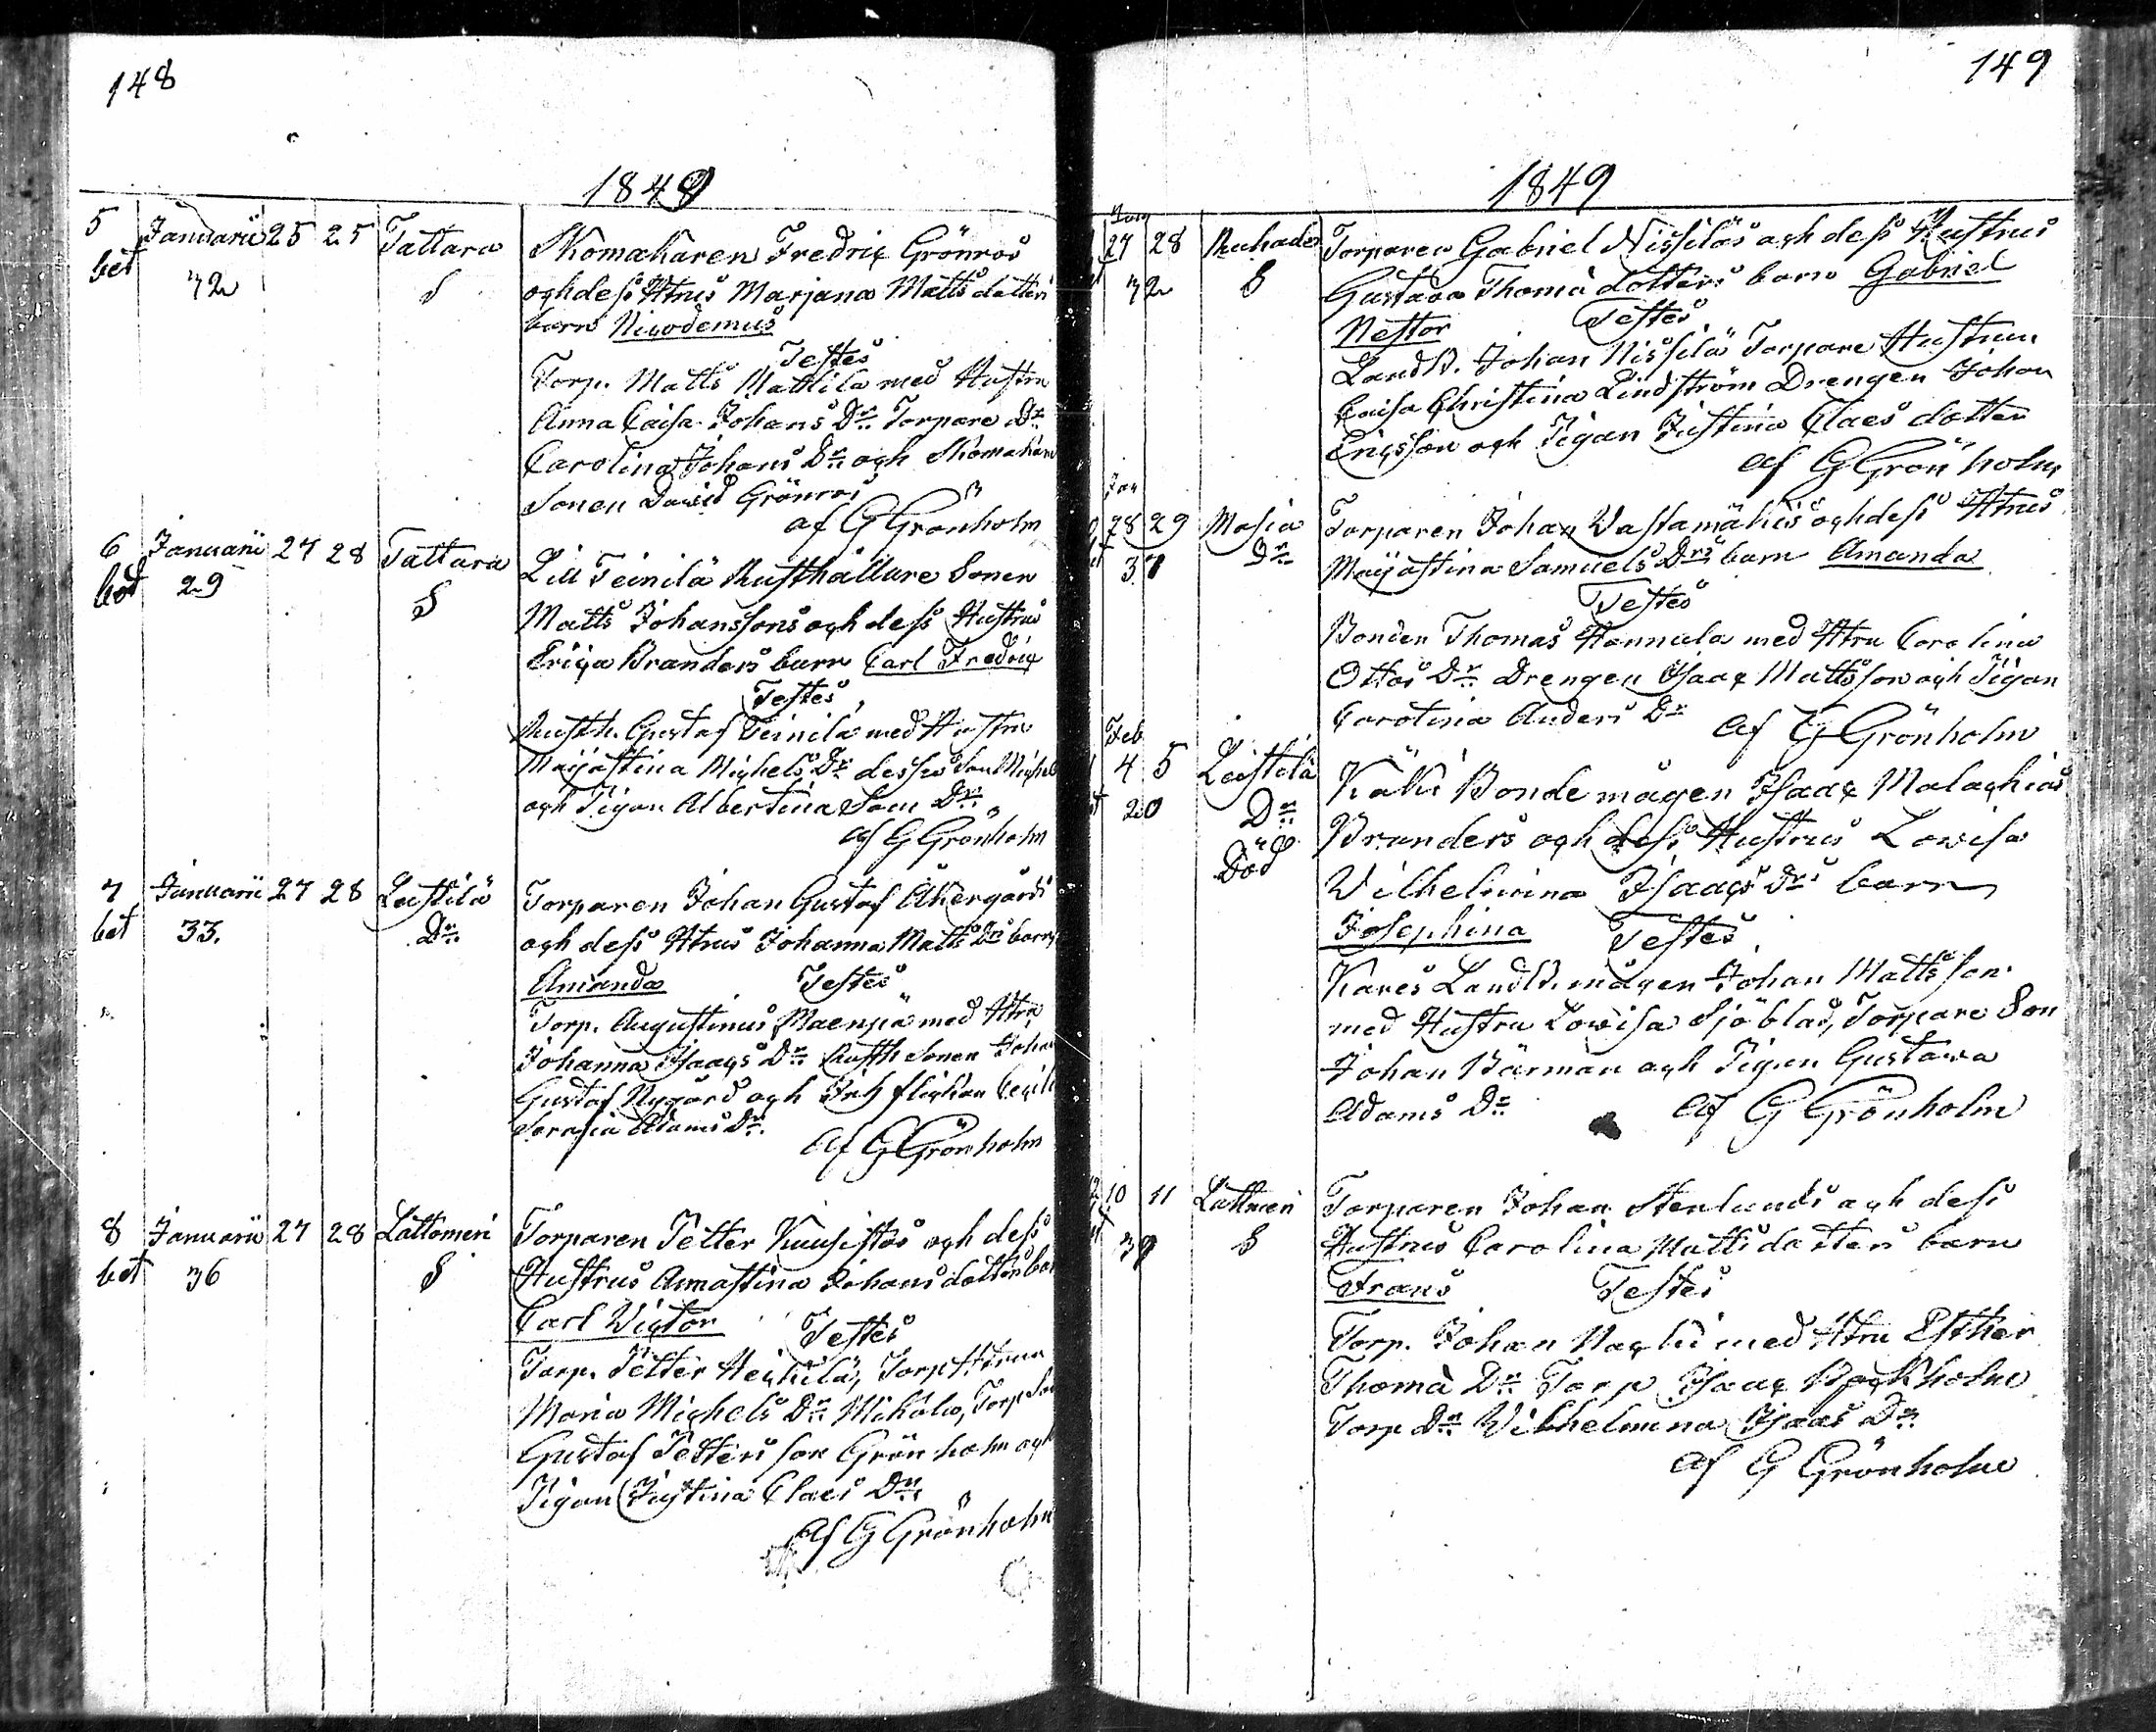 148
1849
5 Januarii 25 25 Tattara Skomakaren Fredric Grönros
bet 32 S och dess Htrus Marjana Matts dotters
barn Nicodemus
Testes
Torp. Matts Mattila med Hustru
Anna Caisa Johans Dr. Torpare Dr.
Carolina Johans Dr. och Skomakare
Sonen David Grönros
af G Grönholm
6 Januarii 27 28 Tattara Lill Teinilä Rusthållare Sonen
bet 29 S Matts Johanssons och dess Hustrus
Erica Branders barn Carl Fredric
Testes
Rusth. Gustaf Teinilä med Hustru
Maijastina Michels Dr. dess Son Michel
och Pigan Albertina Sam Dr.
af G Grönholm
7 Januarii 27 28 Leistilä Torparen Johan Gustaf Åkergårds
bet 33. Dr. och dess Htrus Johanna Matts Drs barn
Amanda Testes
Torp. Augustinus Maenpä med Htru
Johanna Isaacs Dr. Rusth Sonen Johan
Gustaf Nygård och Inh flickan
Adams Dr.
af G Grönholm
8 Januarii 27 28 Lattomeri Torparen Petter Kuusistos och dess
bet 36 S Hustrus Annastina Johans dotters barn
Carl Victor Testes
Torp. Petter Heickilä, Torp. Htrun
Maria Michels Dr. Mikola, Torp Son
Gustaf Petters son Grönholm och
Pigan Justina Claes Dr.
af G Grönholm
149
1849
Jan
27 28 Ruhade Torparen Gabriel Nissiläs och dess Hustrus
32 S Gustava Thomä dotters barn Gabriel
Nestor Testes
Landb. Johan Nissilä Torpare Hustrun
Caisa Christina Lindström Drengen Johan
Ericsson och Pigan Justina Claes dotter
af G Grönholm
Jan
28 29 Masia Torparen Johan Vastamäkis och dess Htrus
37 Dr. Maijastina Samuels Drs barn Amanda
Testes
Bonden Thomas Hannula med Htru Carolina
Ottos Dr. Drengen Isaac Mattsson och Pigan
Carolina Anders Dr
af G Grönholm
Feb
4 5 Leistilä Käki Bonde mågen Isaac Malachias
20 Dr. Branders och dess Hustrus Lovisa
Död Vilhelmina Isaacs Drs barn
Josephina Testes
Kares Landb. mågen Johan Mattsson
med Hustru Lovisa Sjöblad, Torpare Son
Johan Bärman och Pigan Gustava
Adams Dr
af G Grönholm
10 11 Lattmeri Torparen Johan Stenlunds och dess
39 S Hustrus Carolina Matts dotters barn
Frans Testes
Torp. Johan med Htru Esther
Thomä Dr. Torp Isaac Bockholm
Torp Dr. Vilhelmina Isaacs Dr.
af G Grönholm